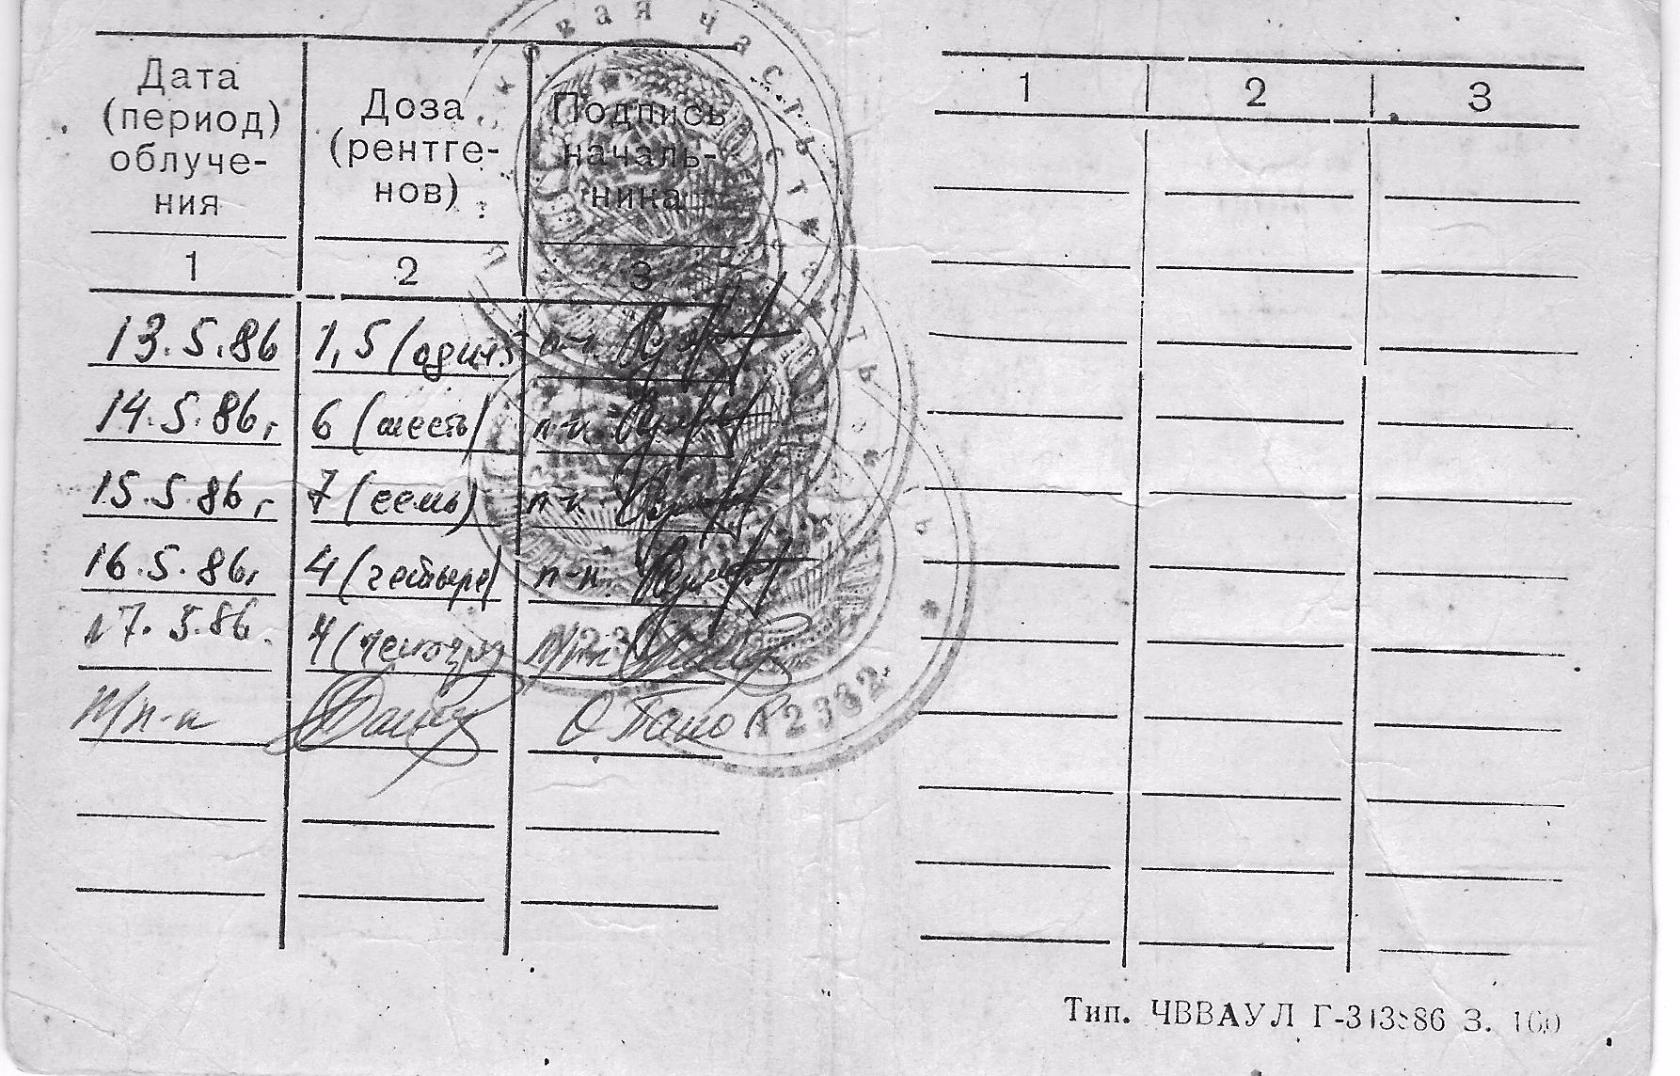 Дата
(период)
облуче-
ния
Доза
(рентге-
нов)
Подпись
началь-
ника
1 2 3
13.5.86 1,5 (один,5 п-к
14.5.86г 6 (шесть) п-к
15.5.86г 7 (семь) п-к
16.5.86г 4 (четыре) п-к
17.5.86 4 (четыре)
п/п-к
1 2 3
войсковая часть
12332
Тип. ЧВВАУЛ Г-313386 З. 100